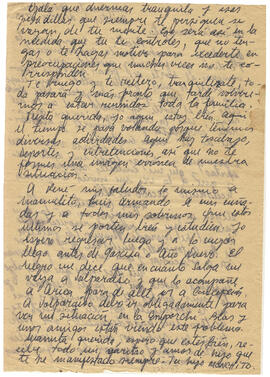 Ojalá que duermas tranquila y esas
pesadillas que siempre te persiguen se
vayan de tu mente. Eso será así en la
medida que tú te controles, que no ten-
gas o te hagas motivos para
preocupaciones que muchas veces no te co-
rresponden.
Te ruego y te reitero, tranquilízate
todo pasará y más pronto que tarde volve-
remos a estar reunidos toda la familia.
querido, yo aquí estoy bien, aquí
el tiempo se pasa volando porque tenemos
diversas actividades. Aquí hay trabajo,
deporte, y entretenciones, así que no te
formes una imagen errónea de nuestra
situación.
A René mis saludos, lo mismo a
mamita, Luis Armando a mi
y a todos mis sobrinos, que estos
últimos se porten bien y estudien. Yo
espero regresar luego y a lo mejor
llego antes de pascua o Año Nuevo. El
negro me dice que en cuanto salga se
va a Valparaíso, y que lo acompañe
a Arica, para de allí
a Valparaíso debo ir obligadamente para
ver mi situación, en la
unos amigos están viendo ese problema.
Mamita querida, espero que estés bien, re-
cibe todo mi cariño y amor de hijo que
te he manifestado siempre. Tu hijo